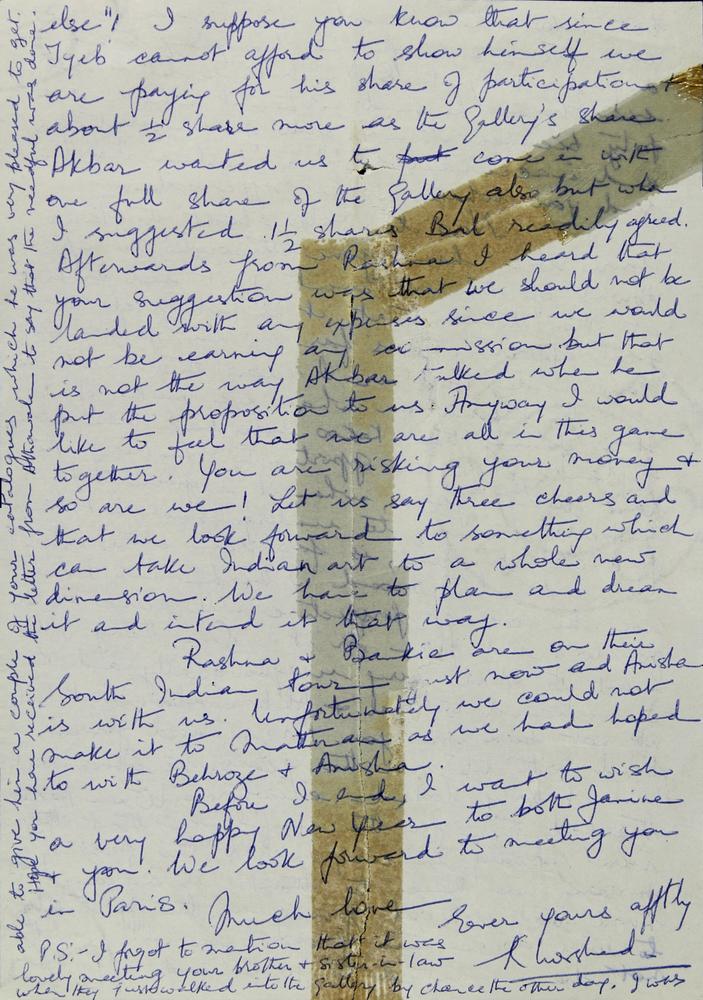 else"! I suppose you know that since
Tyeb cannot afford to show himself we
are paying for his share of participation &
about ½ share more as the Gallery's share
Akbar wanted us to put come in with
one full share of the Gallery also but when
I suggested 1½ shares Bal readily agreed.
Afterwards from Rashna I heard that
your suggestion was that we should not be
landed with any expenses since we would
not be earning any mission but that
is not the way Akbar talked when he
put the proposition to us. Anyway I would
like to feel that we are all in this game
together. You are risking your money &
so are we! Let us say three cheers and
that we look forward to something which
can take Indian art to a whole new
dimension. We have to plan and dream
it and intend it that way.
Rashna & Bankie are on their
South Indian tour just now and Anisha
is with us. Unfortunately we could not
make it to Matheran as we had hoped
to with Behroze & Anisha.
Before I end, I want to wish
a very happy New Year to both Janine
& you. We look forward to meeting you
in Paris.
Much love
Ever yours affly
Khorshed
P.S:- I forgot to mention that it was
lovely meeting your brother & sister-in-law
when they just walked into the Gallery by chance the other day. I was
able to give him a couple of your catalogues which he was very pleased to get.
Hope you have received the letter from Athavale to say that the needful was done.